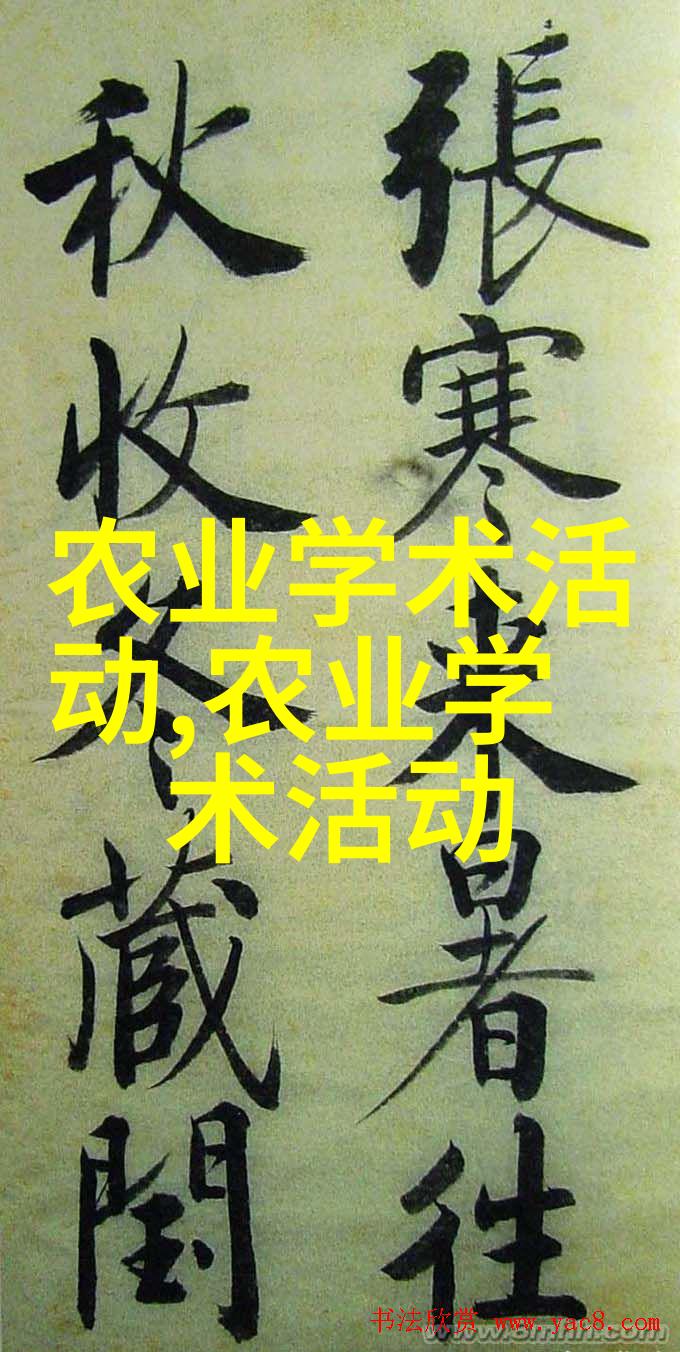 張寒来暑往
秋收冬蔵閏
农业学术活
动,农业学
术活动
书法欣赏 www.yac8.com